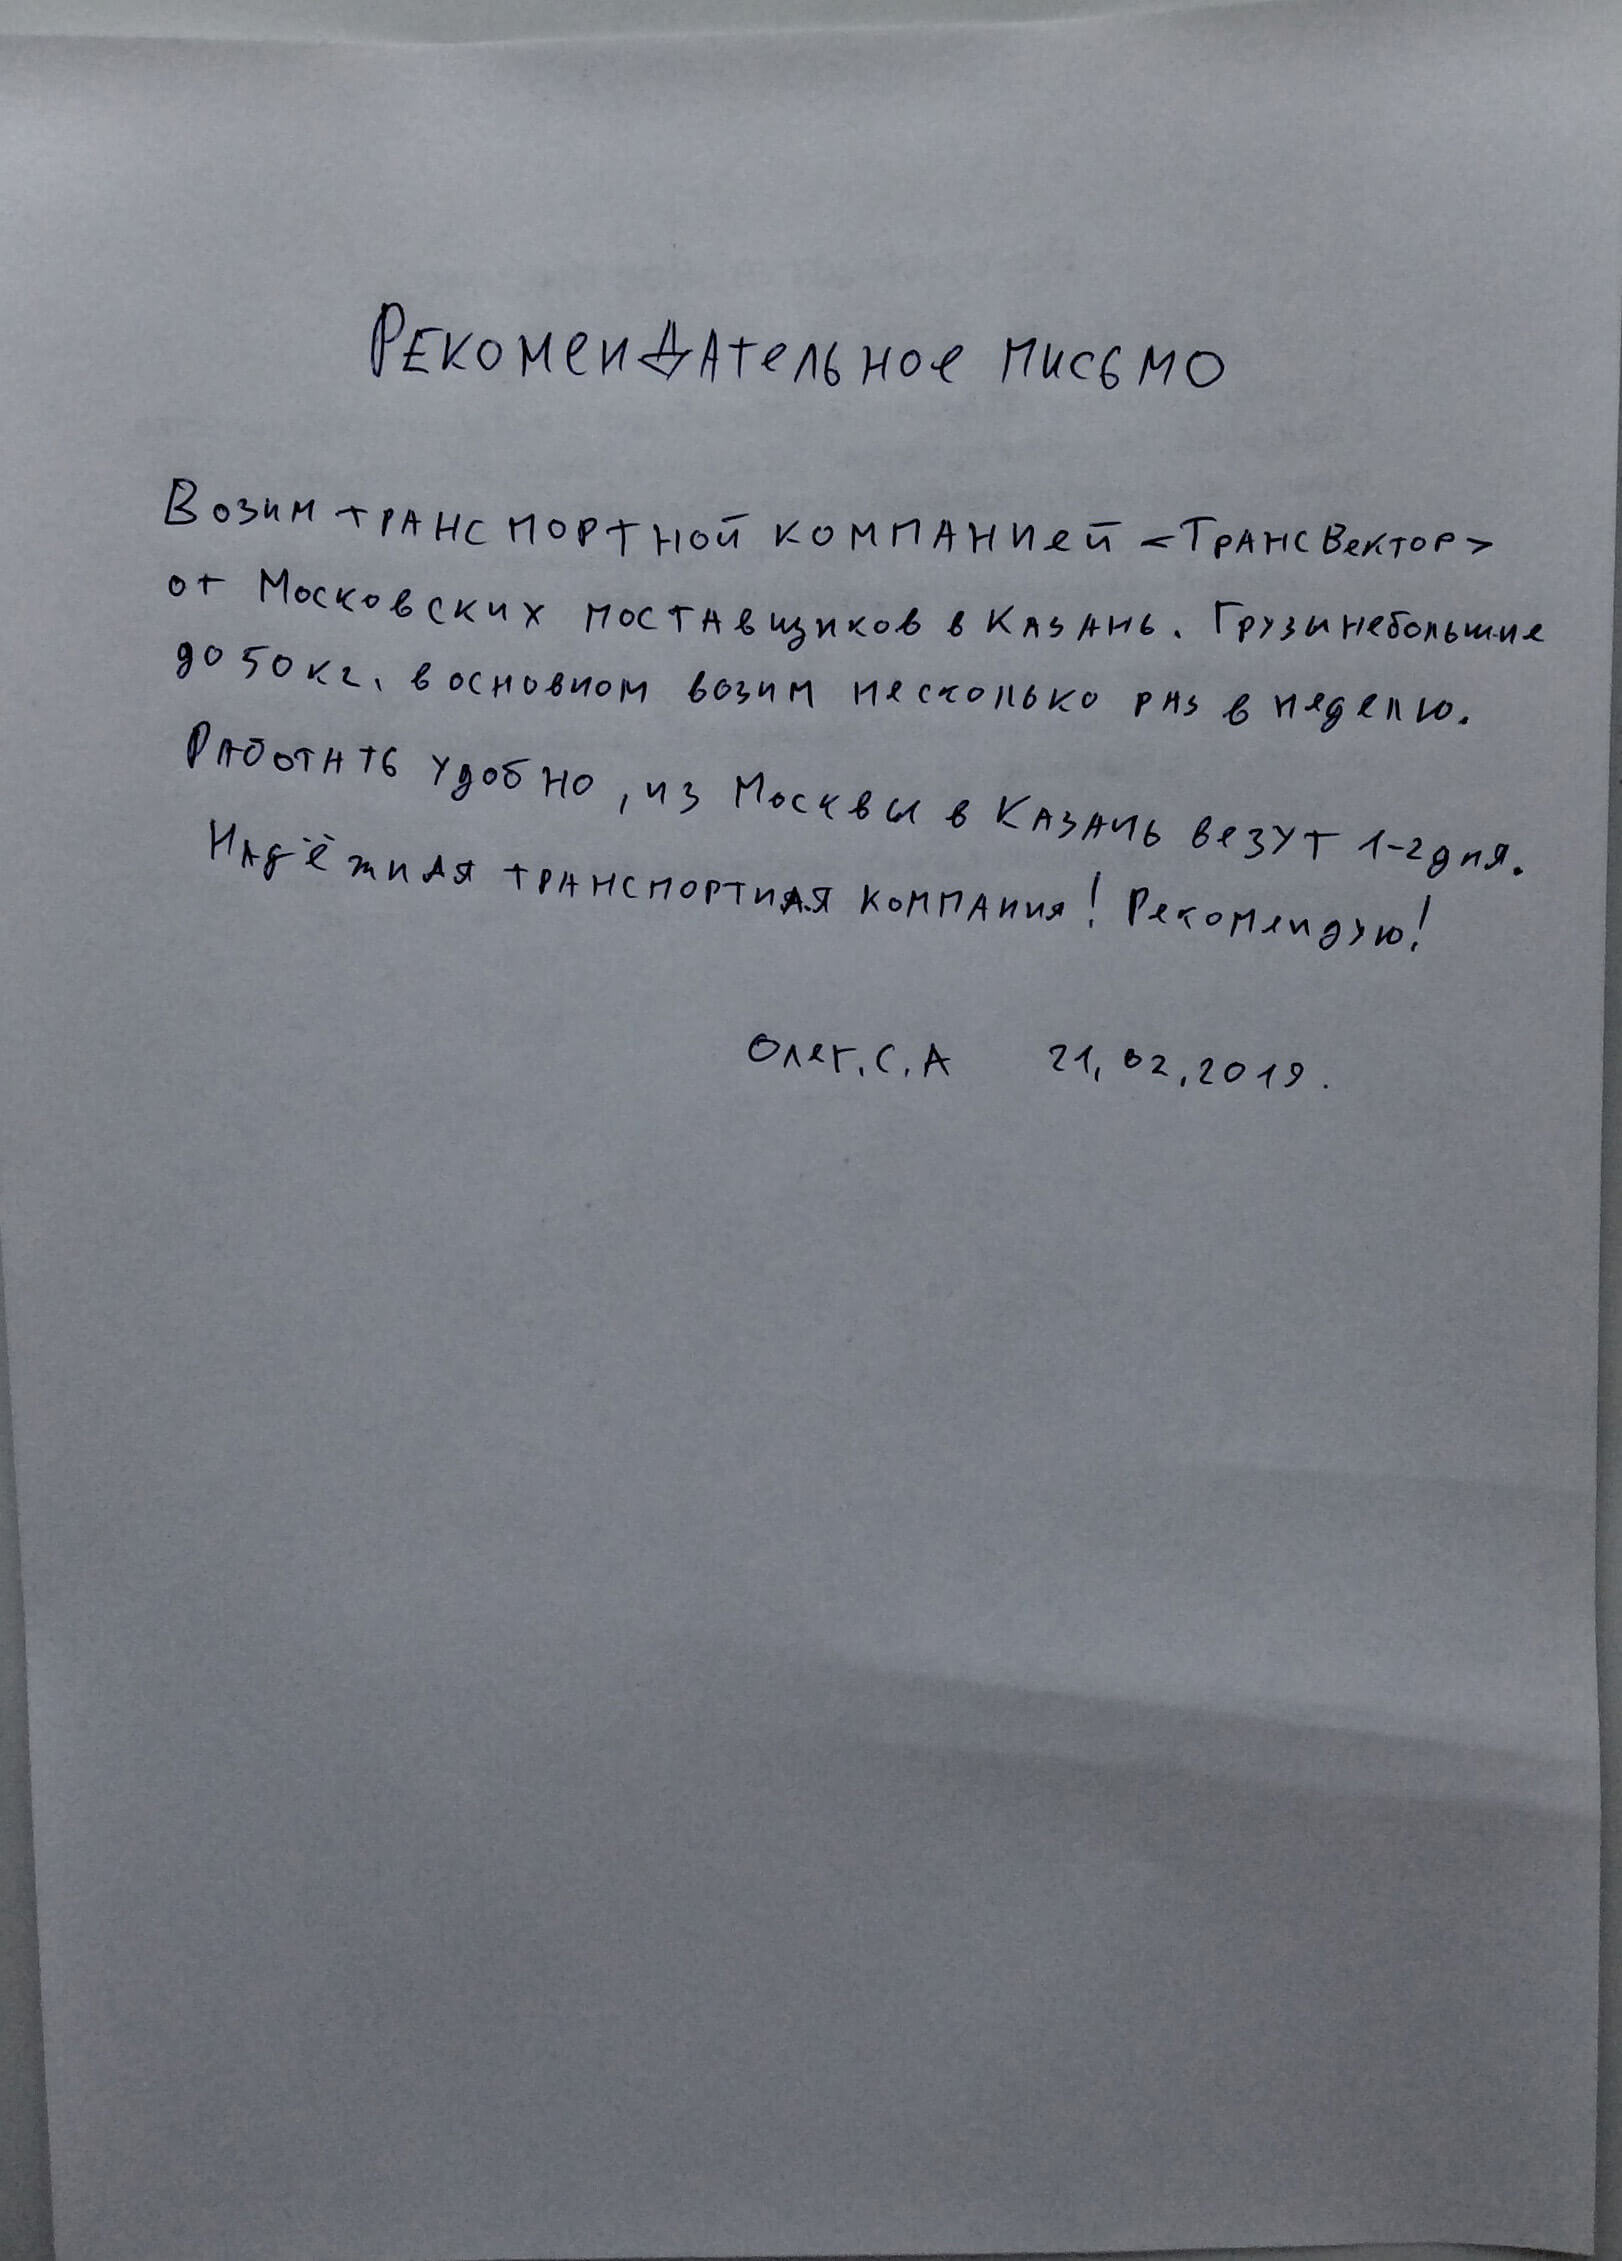 Рекомендательное письмо
Возим транспортной компанией <ТрансВектор>
от Московских поставщиков в Казань. Грузы небольшие
до 50 кг, в основном возим несколько раз в неделю.
Работать удобно, из Москвы в Казань везут 1-2 дня.
Надёжная транспортная компания! Рекомендую!
Олег.С.А 21.02.2019.